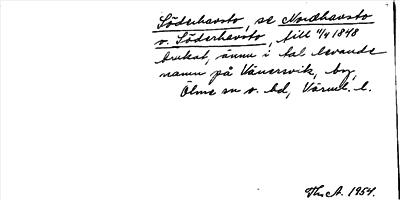 Söderhavsto, se Nordhavsto
o. Söderhavsto, till 11/4 1848
brukat, ännu i tal levande
namn på Vänersvik, by,
Ölme sn o. hd, Värml. l.
A. 1954.